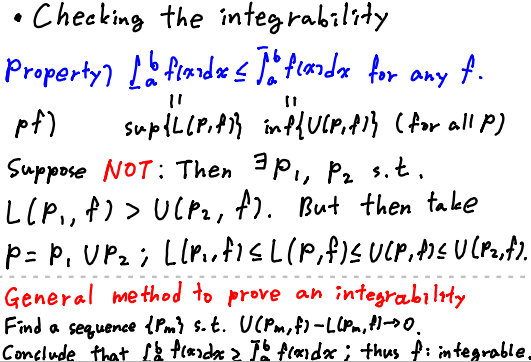 • Checking the integrability
Property) ∫_a^b f(x)dx ≤ ∫̄_a^b f(x)dx for any f.
|| ||
pf) sup{L(P,f)} inf{U(P,f)} (for all P)
Suppose NOT: Then ∃ P₁, P₂ s.t.
L(P₁, f) > U(P₂, f). But then take
P = P₁ ∪ P₂ ; L(P₁,f) ≤ L(P,f) ≤ U(P,f) ≤ U(P₂,f).
General method to prove an integrability
Find a sequence {Pm} s.t. U(Pm,f) - L(Pm,f) → 0.
Conclude that ∫_a^b f(x)dx ≥ ∫̄_a^b f(x)dx ; thus f: integrable.